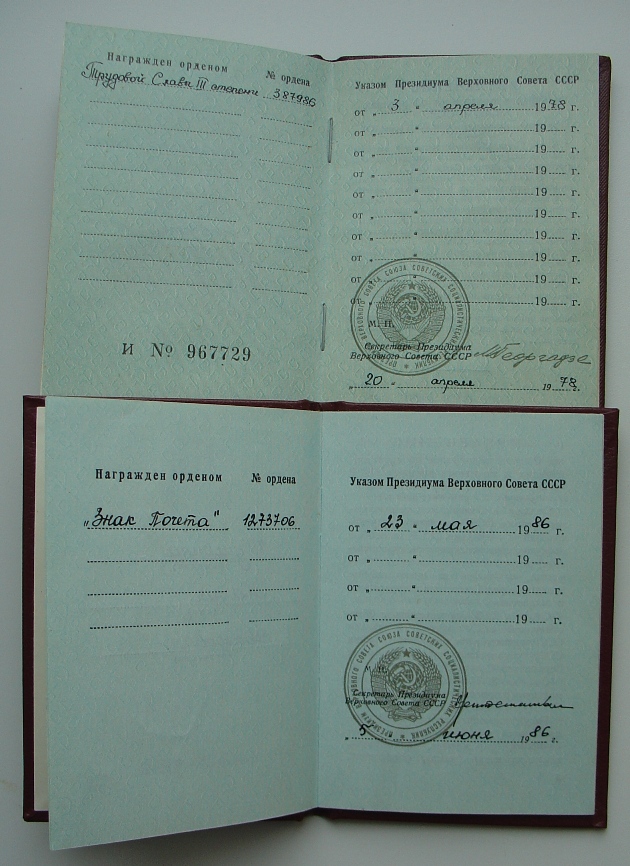 Награжден орденом № ордена
Трудовой Славы III степени 387986
И № 967729
Указом Президиума Верховного Совета СССР
от „ 3 “ апреля 1978 г.
от „ “ 19 г.
от „ “ 19 г.
от „ “ 19 г.
от „ “ 19 г.
от „ “ 19 г.
от „ “ 19 г.
от „ “ 19 г.
от „ “ 19 г.
от „ “ 19 г.
М. П.
Секретарь Президиума
Верховного Совета СССР М Георгадзе
„ 20 “ апреля 1978 г.
Награжден орденом № ордена
„Знак Почета“ 1273706
Указом Президиума Верховного Совета СССР
от „ 23 “ мая 1986 г.
от „ “ 19 г.
от „ “ 19 г.
от „ “ 19 г.
М. П.
Секретарь Президиума
Верховного Совета СССР
„ 5 “ июня 1986 г.